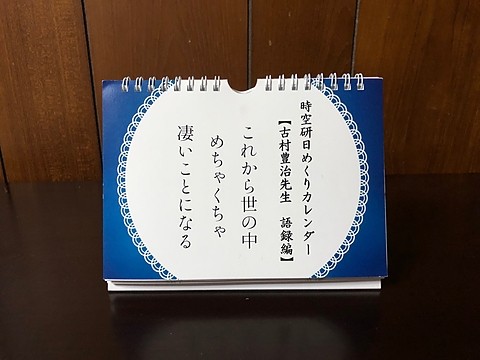 時空研日めくりカレンダー
【古村豊治先生 語録編】
これから世の中
めちゃくちゃ
凄いことになる